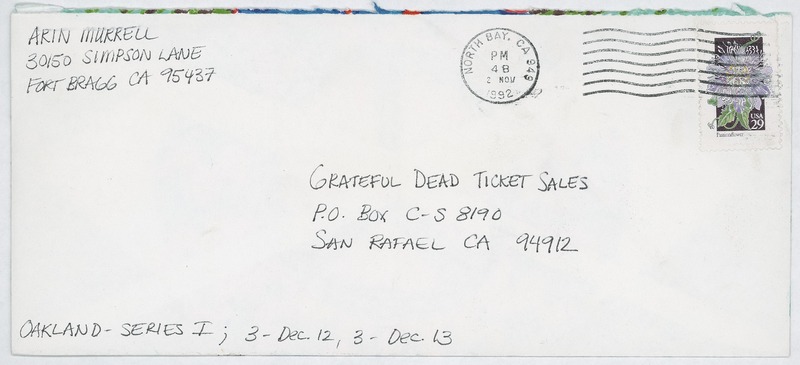 ARIN MURRELL
30150 SIMPSON LANE
FORT BRAGG CA 95437
NORTH BAY, CA 949
PM
4B
2 NOV
1992
USA
29
Passionflower
GRATEFUL DEAD TICKET SALES
P.O. BOX C-S 8190
SAN RAFAEL CA 94912
OAKLAND - SERIES I ; 3 - Dec. 12, 3 - Dec. 13